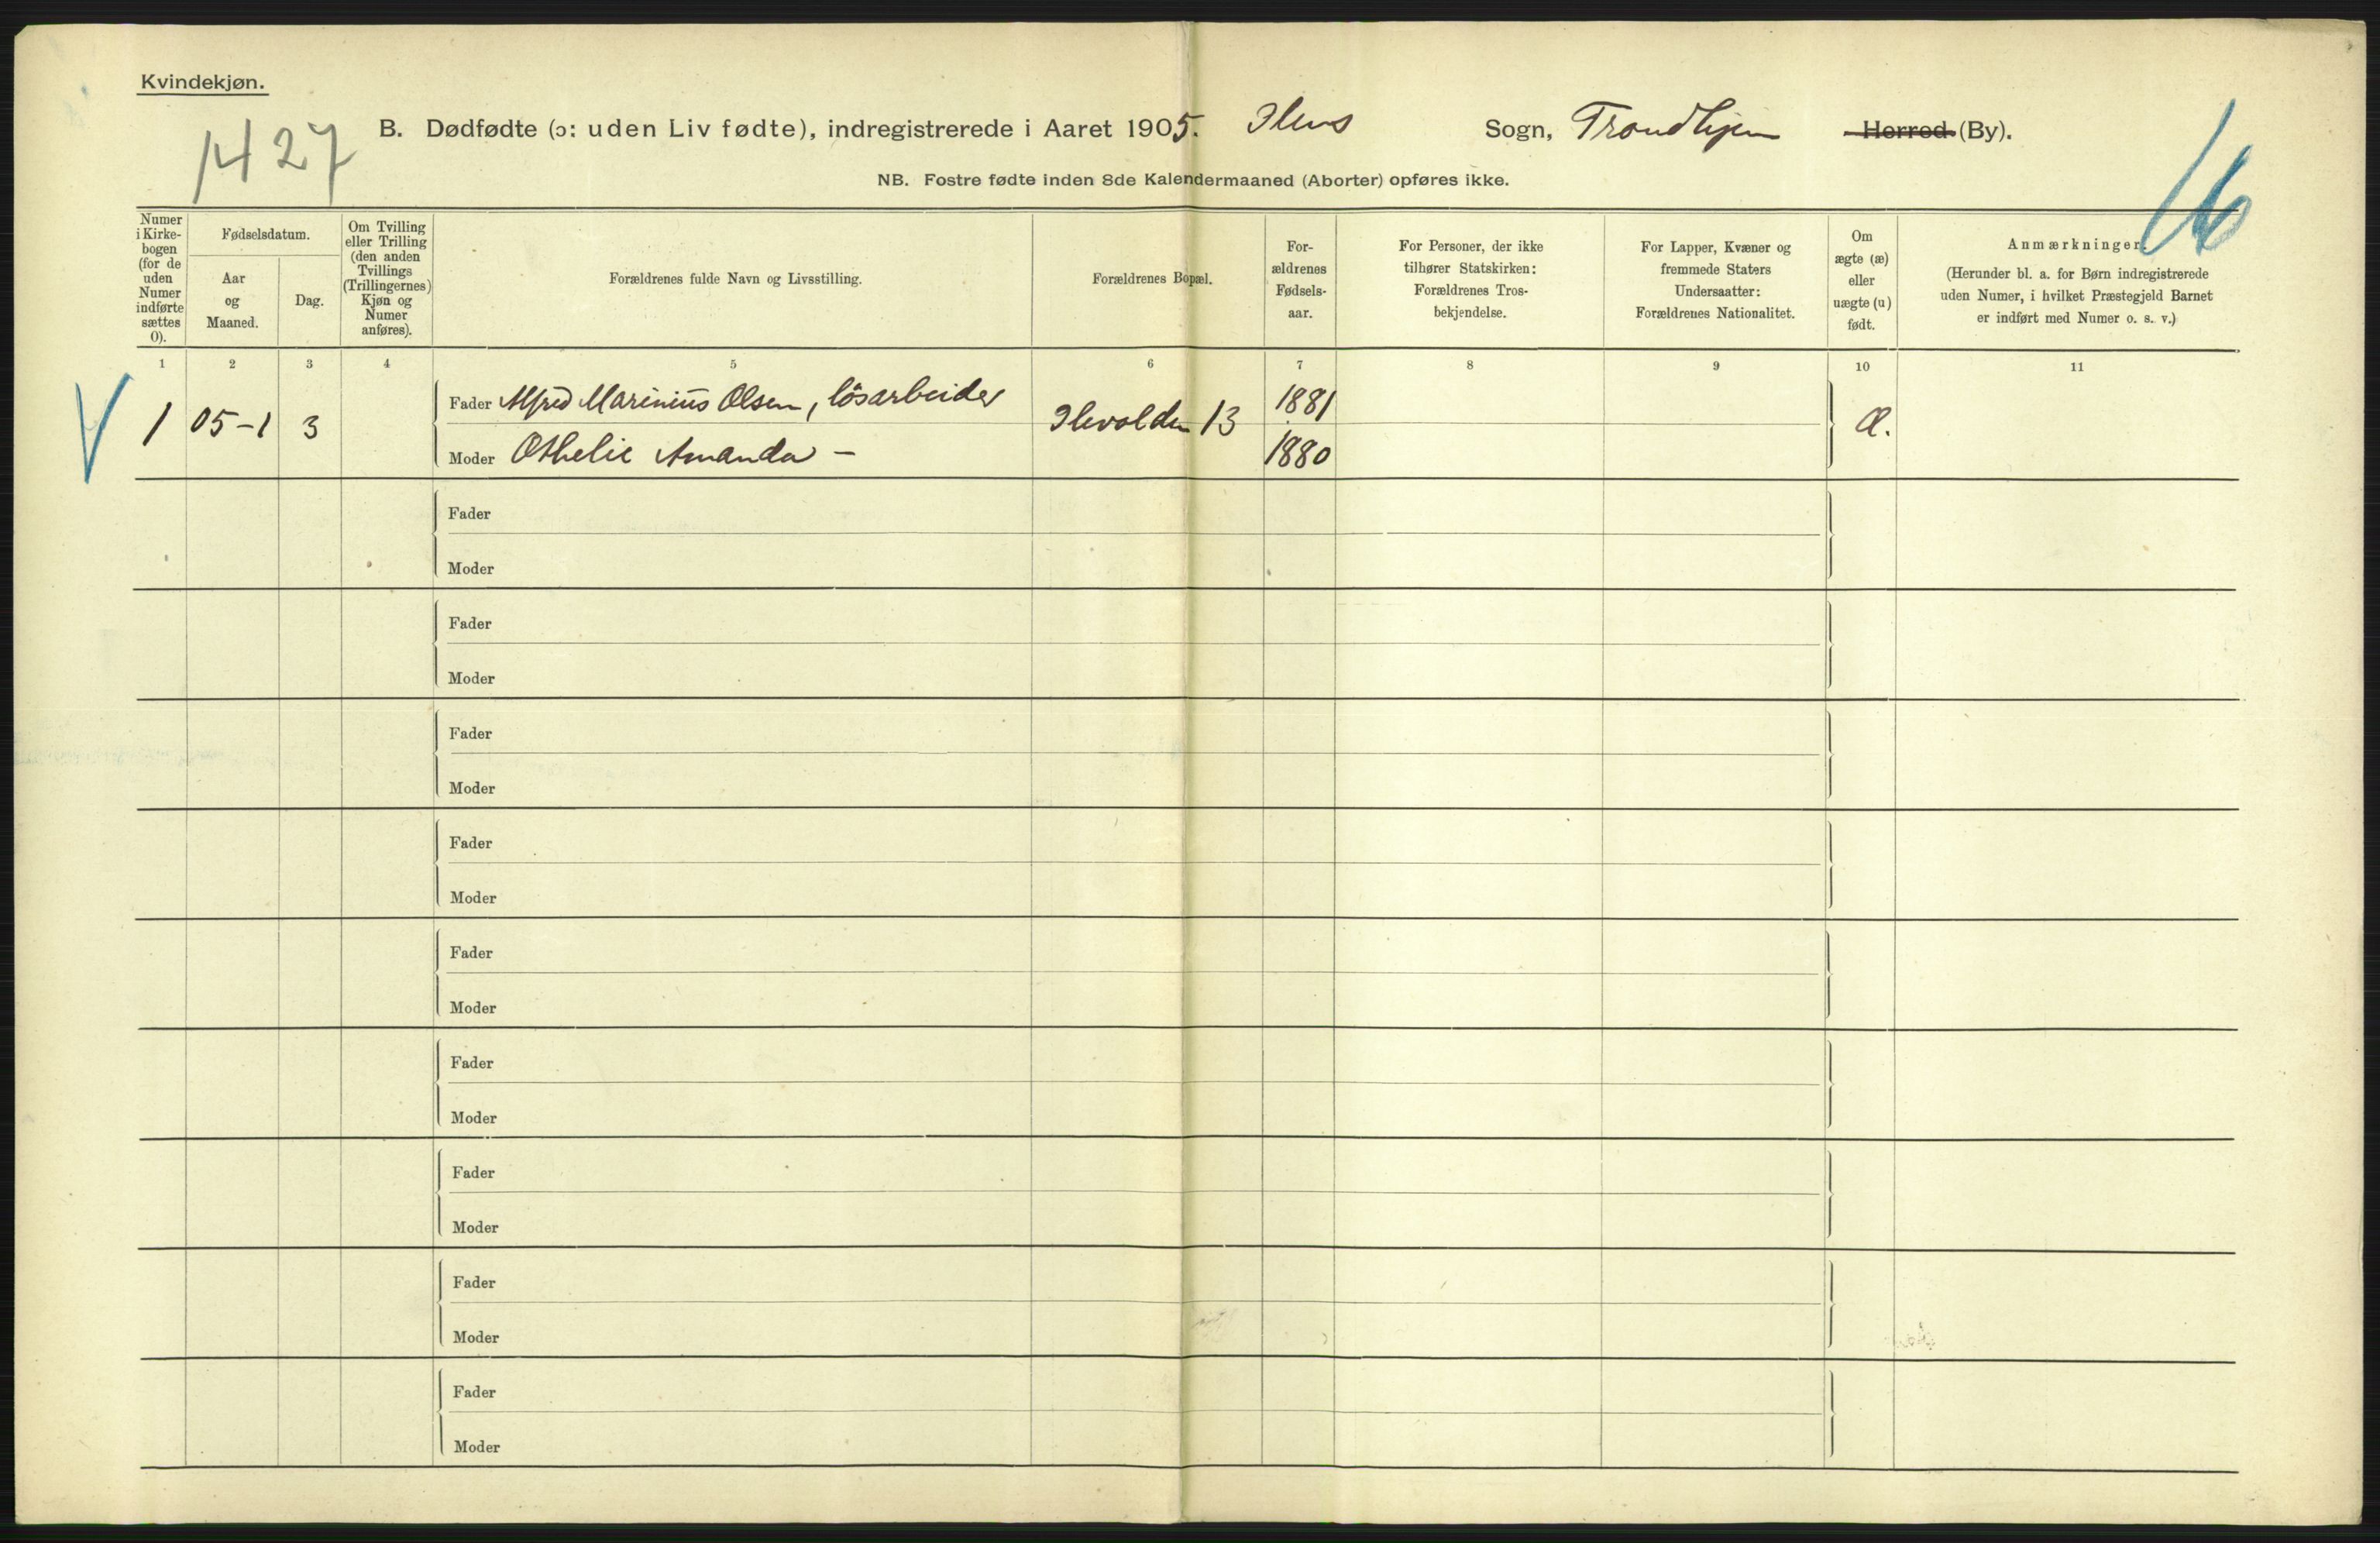 Kvindekjøn.
1427
B. Dødfødte (ɔ: uden Liv fødte), indregistrerede i Aaret 1905. Ilens Sogn, Trondhjem Herred (By).
16
NB. Fostre fødte inden 8de Kalendermaaned (Aborter) opføres ikke.
Numer
i Kirke-
bogen
(for de
uden
Numer
indførte
sættes
0).
Fødselsdatum.
Aar
og
Maaned.
Dag.
Om Tvilling
eller Trilling
(den anden
Tvillings
(Trillingernes)
Kjøn og
Numer
anføres).
Forældrenes fulde Navn og Livsstilling.
Forældrenes Bopæl.
For-
ældrenes
Fødsels-
aar.
For Personer, der ikke
tilhører Statskirken:
Forældrenes Tros-
bekjendelse.
For Lapper, Kvæner og
fremmede Staters
Undersaatter:
Forældrenes Nationalitet.
Om
ægte (æ)
eller
uægte (u)
født.
Anmærkninger.
(Herunder bl. a. for Børn indregistrerede
uden Numer, i hvilket Præstegjeld Barnet
er indført med Numer o. s. v.)
1 2 3 4 5 6 7 8 9 10 11
V 1 05-1 3 Fader Alfred Marinius Olsen, løsarbeider Ilevolden 13 1881 Æ.
Moder Othelie Amanda - 1880
Fader
Moder
Fader
Moder
Fader
Moder
Fader
Moder
Fader
Moder
Fader
Moder
Fader
Moder
Fader
Moder
Fader
Moder